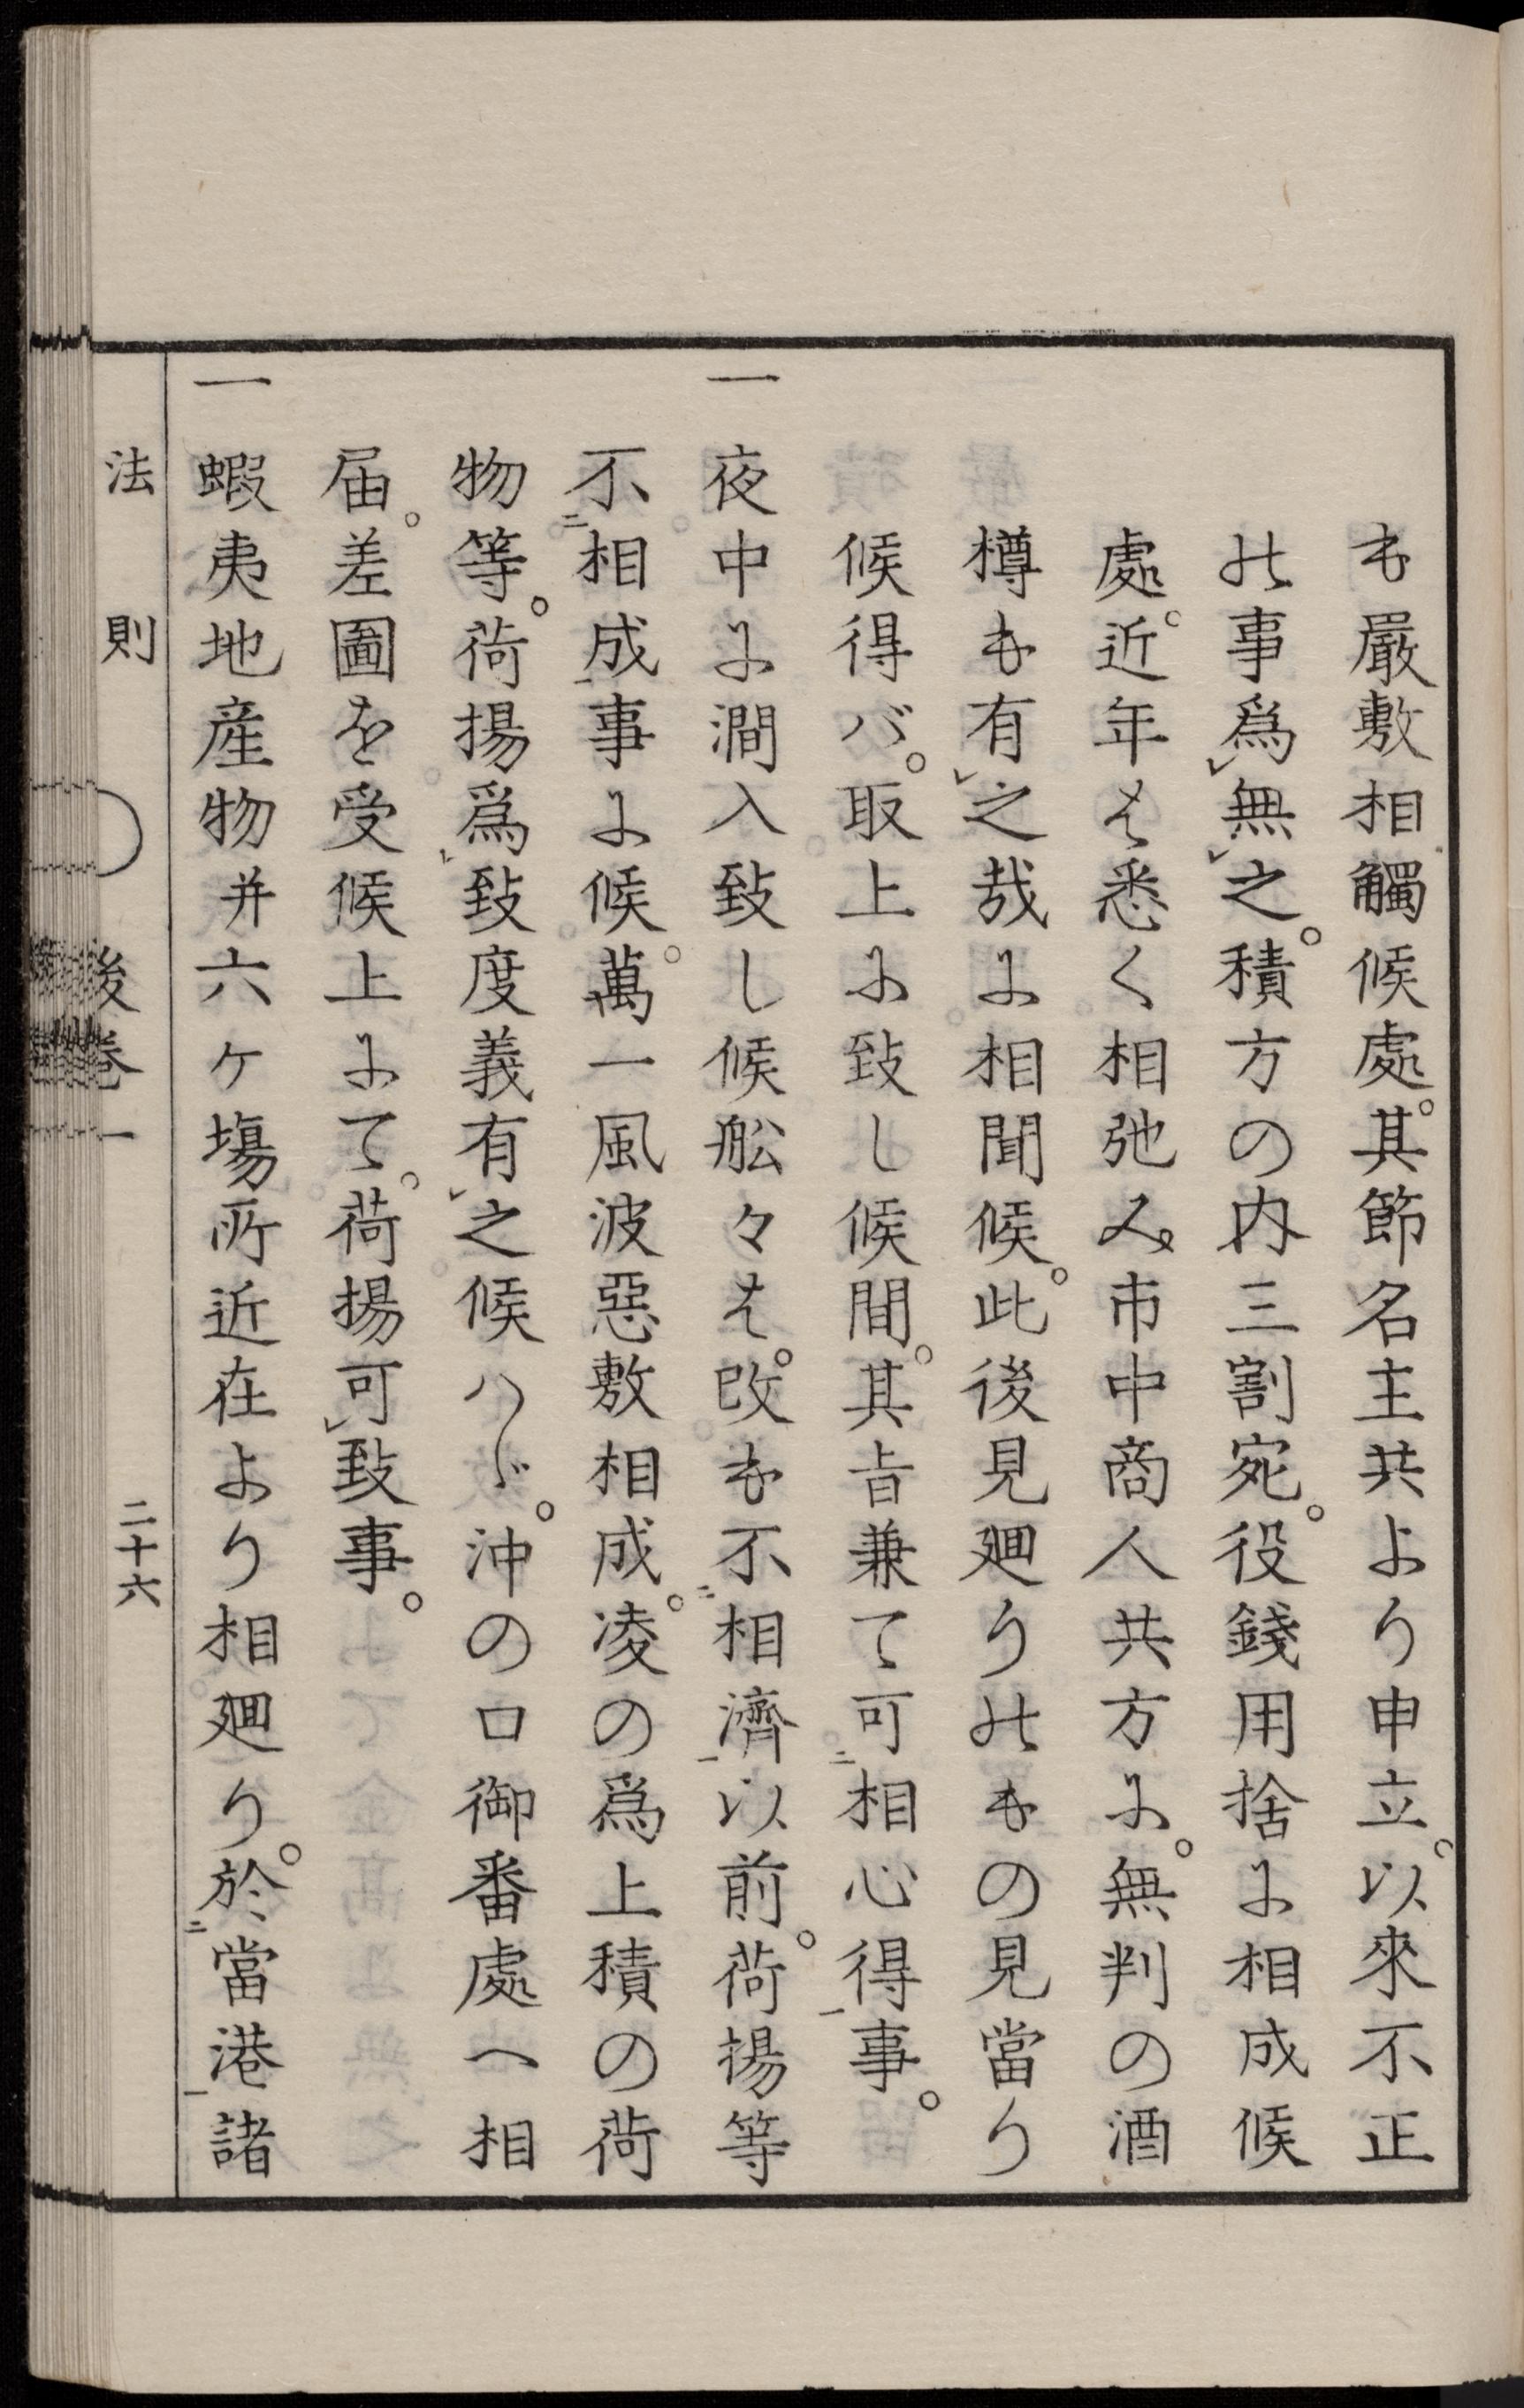 も嚴敷相觸候處。其節名主共より申立。以來不正
の事爲㆑無㆑之。積方の内三割宛。役錢用捨に相成候
處。近年は悉く相弛み市中商人共方に。無判の酒
樽も有㆑之哉に相聞候。此後見廻りのもの見當り
候得バ。取上に致し候間。其旨兼て可㆓相心得㆒事。
一 夜中に澗入致し候舩々は。改も不㆓相濟㆒以前。荷揚等
不㆓相成㆒事に候。萬一風波惡敷相成。凌の爲上積の荷
物等。荷揚爲㆑致度義有㆑之候ハヾ。沖の口御番處へ相
届。差圖を受候上にて。荷揚可㆑致事。
一 蝦夷地産物并六ケ塲所近在より相廻り。於㆓當港㆒諸
法則 後巻一 二十六